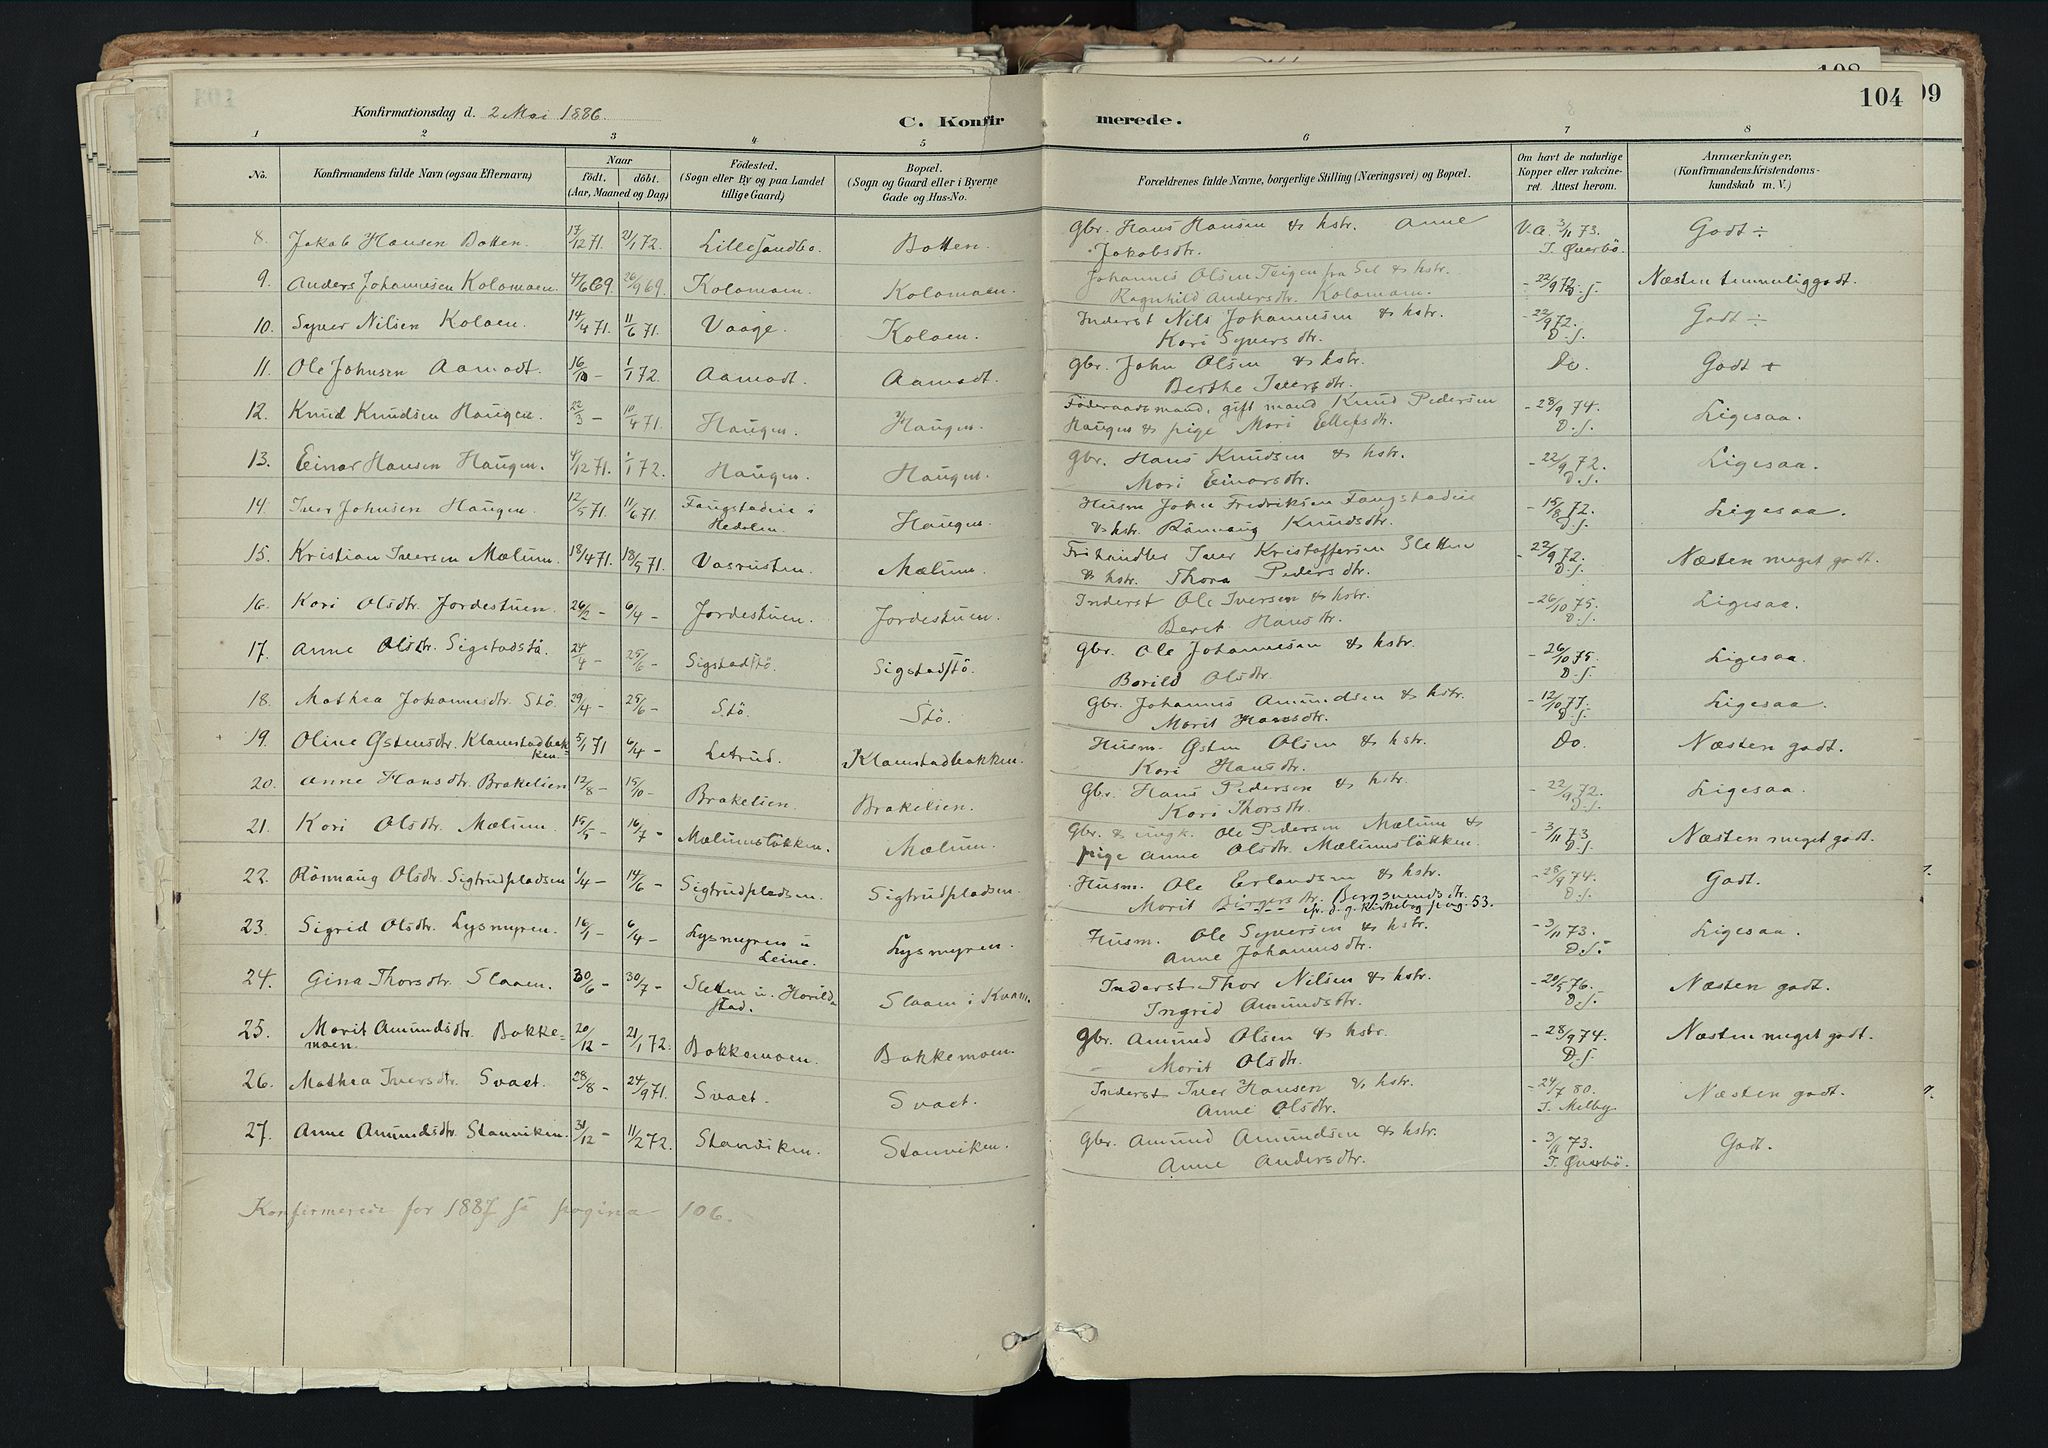 108
99
104
Konfirmationsdag d. 2 Mai 1886.
C. Konfirmerede.
1 2 3 4 5 6 7 8
No. Konfirmandens fulde Navn (ogsaa Efternavn) Naar født. döbt. (Aar, Maaned og Dag) Födested. (Sogn eller By og paa Landet tillige Gaard) Bopæl. (Sogn og Gaard eller i Byerne Gade og Hus-No. Forældrenes fulde Navne, borgerlige Stilling (Næringsvei) og Bopæl. Om havt de naturlige Kopper eller vakcineret. Attest herom. Anmærkninger, (Konfirmandens Kristendomskundskab m. V.)
8. Jakob Hansen Botten. 17/12 71. 21/1 72. Lillesandbo. Botten. Gbr. Hans Hansen & hstr. Anne V.A. 3/11 73. Godt ÷
Jakobsdtr. J. Øverbö.
9. Anders Johannesen Kolomoen. 4/6 69. 26/9 69. Kolomoen. Kolomoen. Johannes Olsen Teigen fra Sel & hstr. - 22/9 72. Næsten temmelig godt.
Ragnhild Andersdtr. Kolomoen. D.S.
10. Syver Nilsen Koloen. 14/4 71. 11/6 71. Vaage. Koloen. Inderst Nils Johannesen & hstr. - 22/9 72. Godt ÷
Kari Syversdtr. D.S.
11. Ole Johnsen Aamodt. 16/10 - 1/1 72. Aamodt. Aamodt. Gbr. John Olsen & hstr. Do. Godt +
Berthe Iversdtr.
12. Knud Knudsen Haugen. 22/3 - 10/4 71. Haugen. Haugen. Föderaadsmand, gift mand Knud Pedersen - 28/9 74. Ligesaa.
Haugen & pige Mari Ellefsdtr. D.S.
13. Einar Hansen Haugen. 4/12 71. 1/1 72. Haugen. Haugen. Gbr. Hans Knudsen & hstr. - 22/9 72. Ligesaa.
Mari Einarsdtr. D.S.
14. Iver Johnsen Haugen. 12/5 71. 11/6 71. Fangstadeie i Hedalen. Haugen. Husm John Fredriksen Fangstadeie - 15/8 72. Ligesaa.
& hstr. Rönnaug Knudsdtr. D.S.
15. Kristian Iversen Mælum. 18/4 71. 18/5 71. Vasrusten. Mælum. Frihandler Iver Kristoffersen Sletten - 22/9 72. Næsten meget godt.
& hstr. Thora Pedersdtr. D.S.
16. Kari Olsdtr. Jordestuen. 26/2 - 6/4 - Jordestuen. Jordestuen. Inderst Ole Iversen & hstr. - 26/10 75. Ligesaa.
Berit Hansdtr. D.S.
17. Anne Olsdtr. Sigstadstö. 24/4 - 25/6 - Sigstadstö. Sigstadstö. Gbr. Ole Johannesen & hstr. - 26/10 75. Ligesaa.
Borild Olsdtr. D.S.
18. Mathea Johannesdtr. Stö. 29/4 - 25/6 - Stö. Stö. Gbr. Johannes Amundsen & hstr. - 12/10 77. Ligesaa.
Marit Hansdtr. D.S.
19. Oline Østensdtr. Klomstadbakken. 5/1 71 6/4 - Letrud. Klomstadbakken. Husm. Østen Olsen & hstr. Do. Næsten godt.
Kari Hansdtr.
20. Anne Hansdtr. Brakelien 12/8 - 15/10 - Brakelien. Brakelien. Gbr. Hans Pedersen & hstr. - 22/9 72. Ligesaa.
Kari Thorsdtr. D.S.
21. Kari Olsdtr. Mælum. 15/5 - 16/7 - Mælumslökken. Mælum. Gbr. & ungk. Ole Pedersen Mælum & - 3/11 73. Næsten meget godt.
pige Anne Olsdtr. Mælumslökken. D.S.
22. Rönnaug Olsdtr. Sigtrudpladsen 1/4 - 14/6 - Sigtrudpladsen. Sigtrudpladsen. Husm. Ole Erlandsen & hstr. - 28/9 74. Godt.
Marit Birgersdtr. Bergsvendsdtr. D.S.
cfr. d. g. Kirkebog pag. 53.
23. Sigrid Olsdtr. Lysmyren. 16/1 - 6/4 - Lysmyren u Leine. Lysmyren. Husm. Ole Syversen & hstr. - 3/11 73. Ligesaa.
Anne Johannesdtr. D.S.
24. Gina Thorsdtr. Slaaen. 30/6 - 30/7 - Sletten u. Horildstad. Slaaen i Kvam. Inderst Thor Nilsen & hstr. - 20/5 76. Næsten godt.
Ingrid Amundsdtr. D.S.
25. Marit Amundsdtr. Bakkemoen. 20/12 - 21/1 72. Bakkemoen. Bakkemoen. Gbr. Amund Olsen & hstr. - 28/9 74. Næsten meget godt.
Marit Olsdtr. D.S.
26. Mathea Iversdtr. Svaet. 28/8 - 24/9 71. Svaet. Svaet. Inderst Iver Hansen & hstr. - 24/7 80. Næsten godt.
Anne Olsdtr. J. Melby.
27. Anne Amundsdtr. Stamviken. 31/12 - 11/2 72. Stamviken. Stamviken. Gbr. Amund Amundsen & hstr. - 3/11 73. Godt.
Anne Andersdtr. J. Øverbö.
Konfirmerede for 1887 se pagina 106.